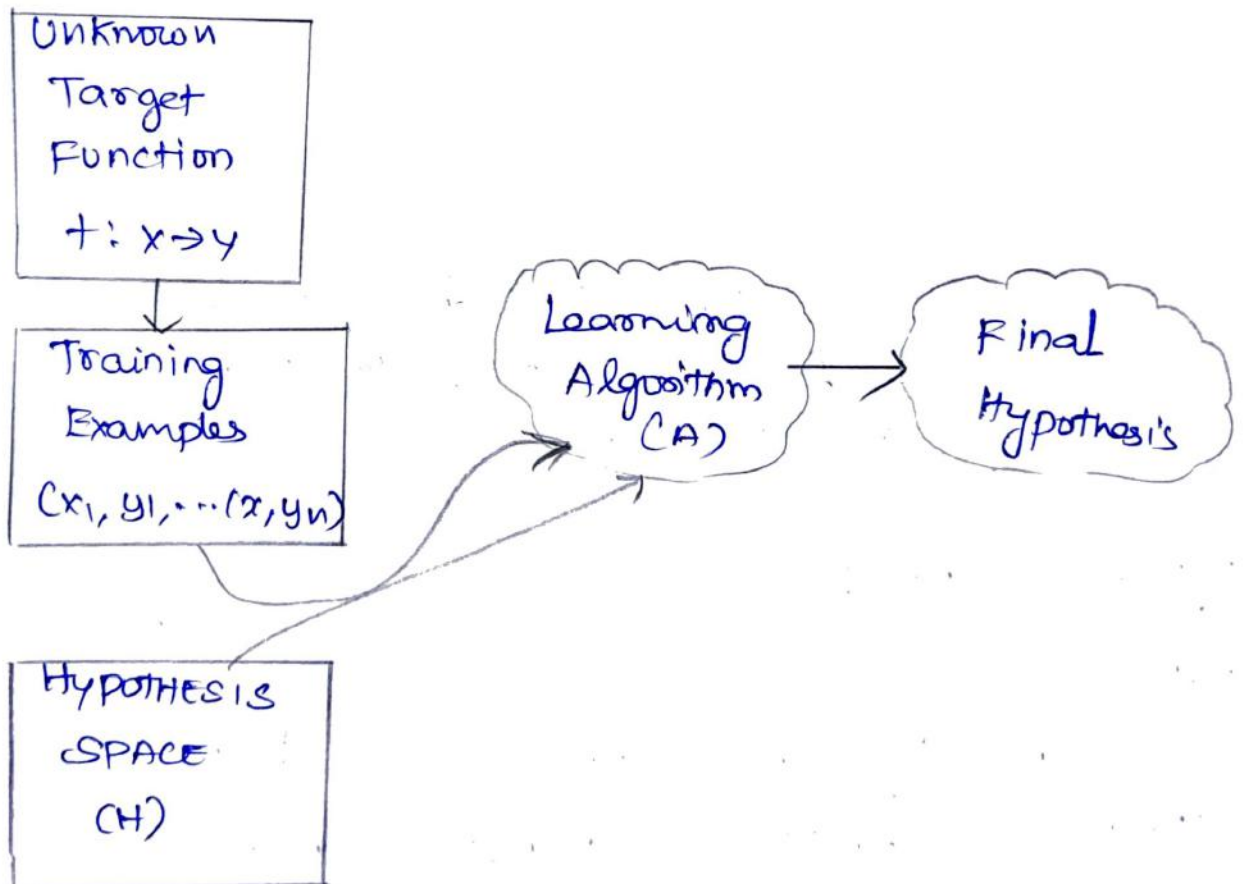 Unknown
Target
Function
+: x→y
Training
Examples
(x1, y1, ....(x, yn)
HYPOTHESIS
SPACE
(H)
Learning
Algorithm
(A)
Final
Hypothesis